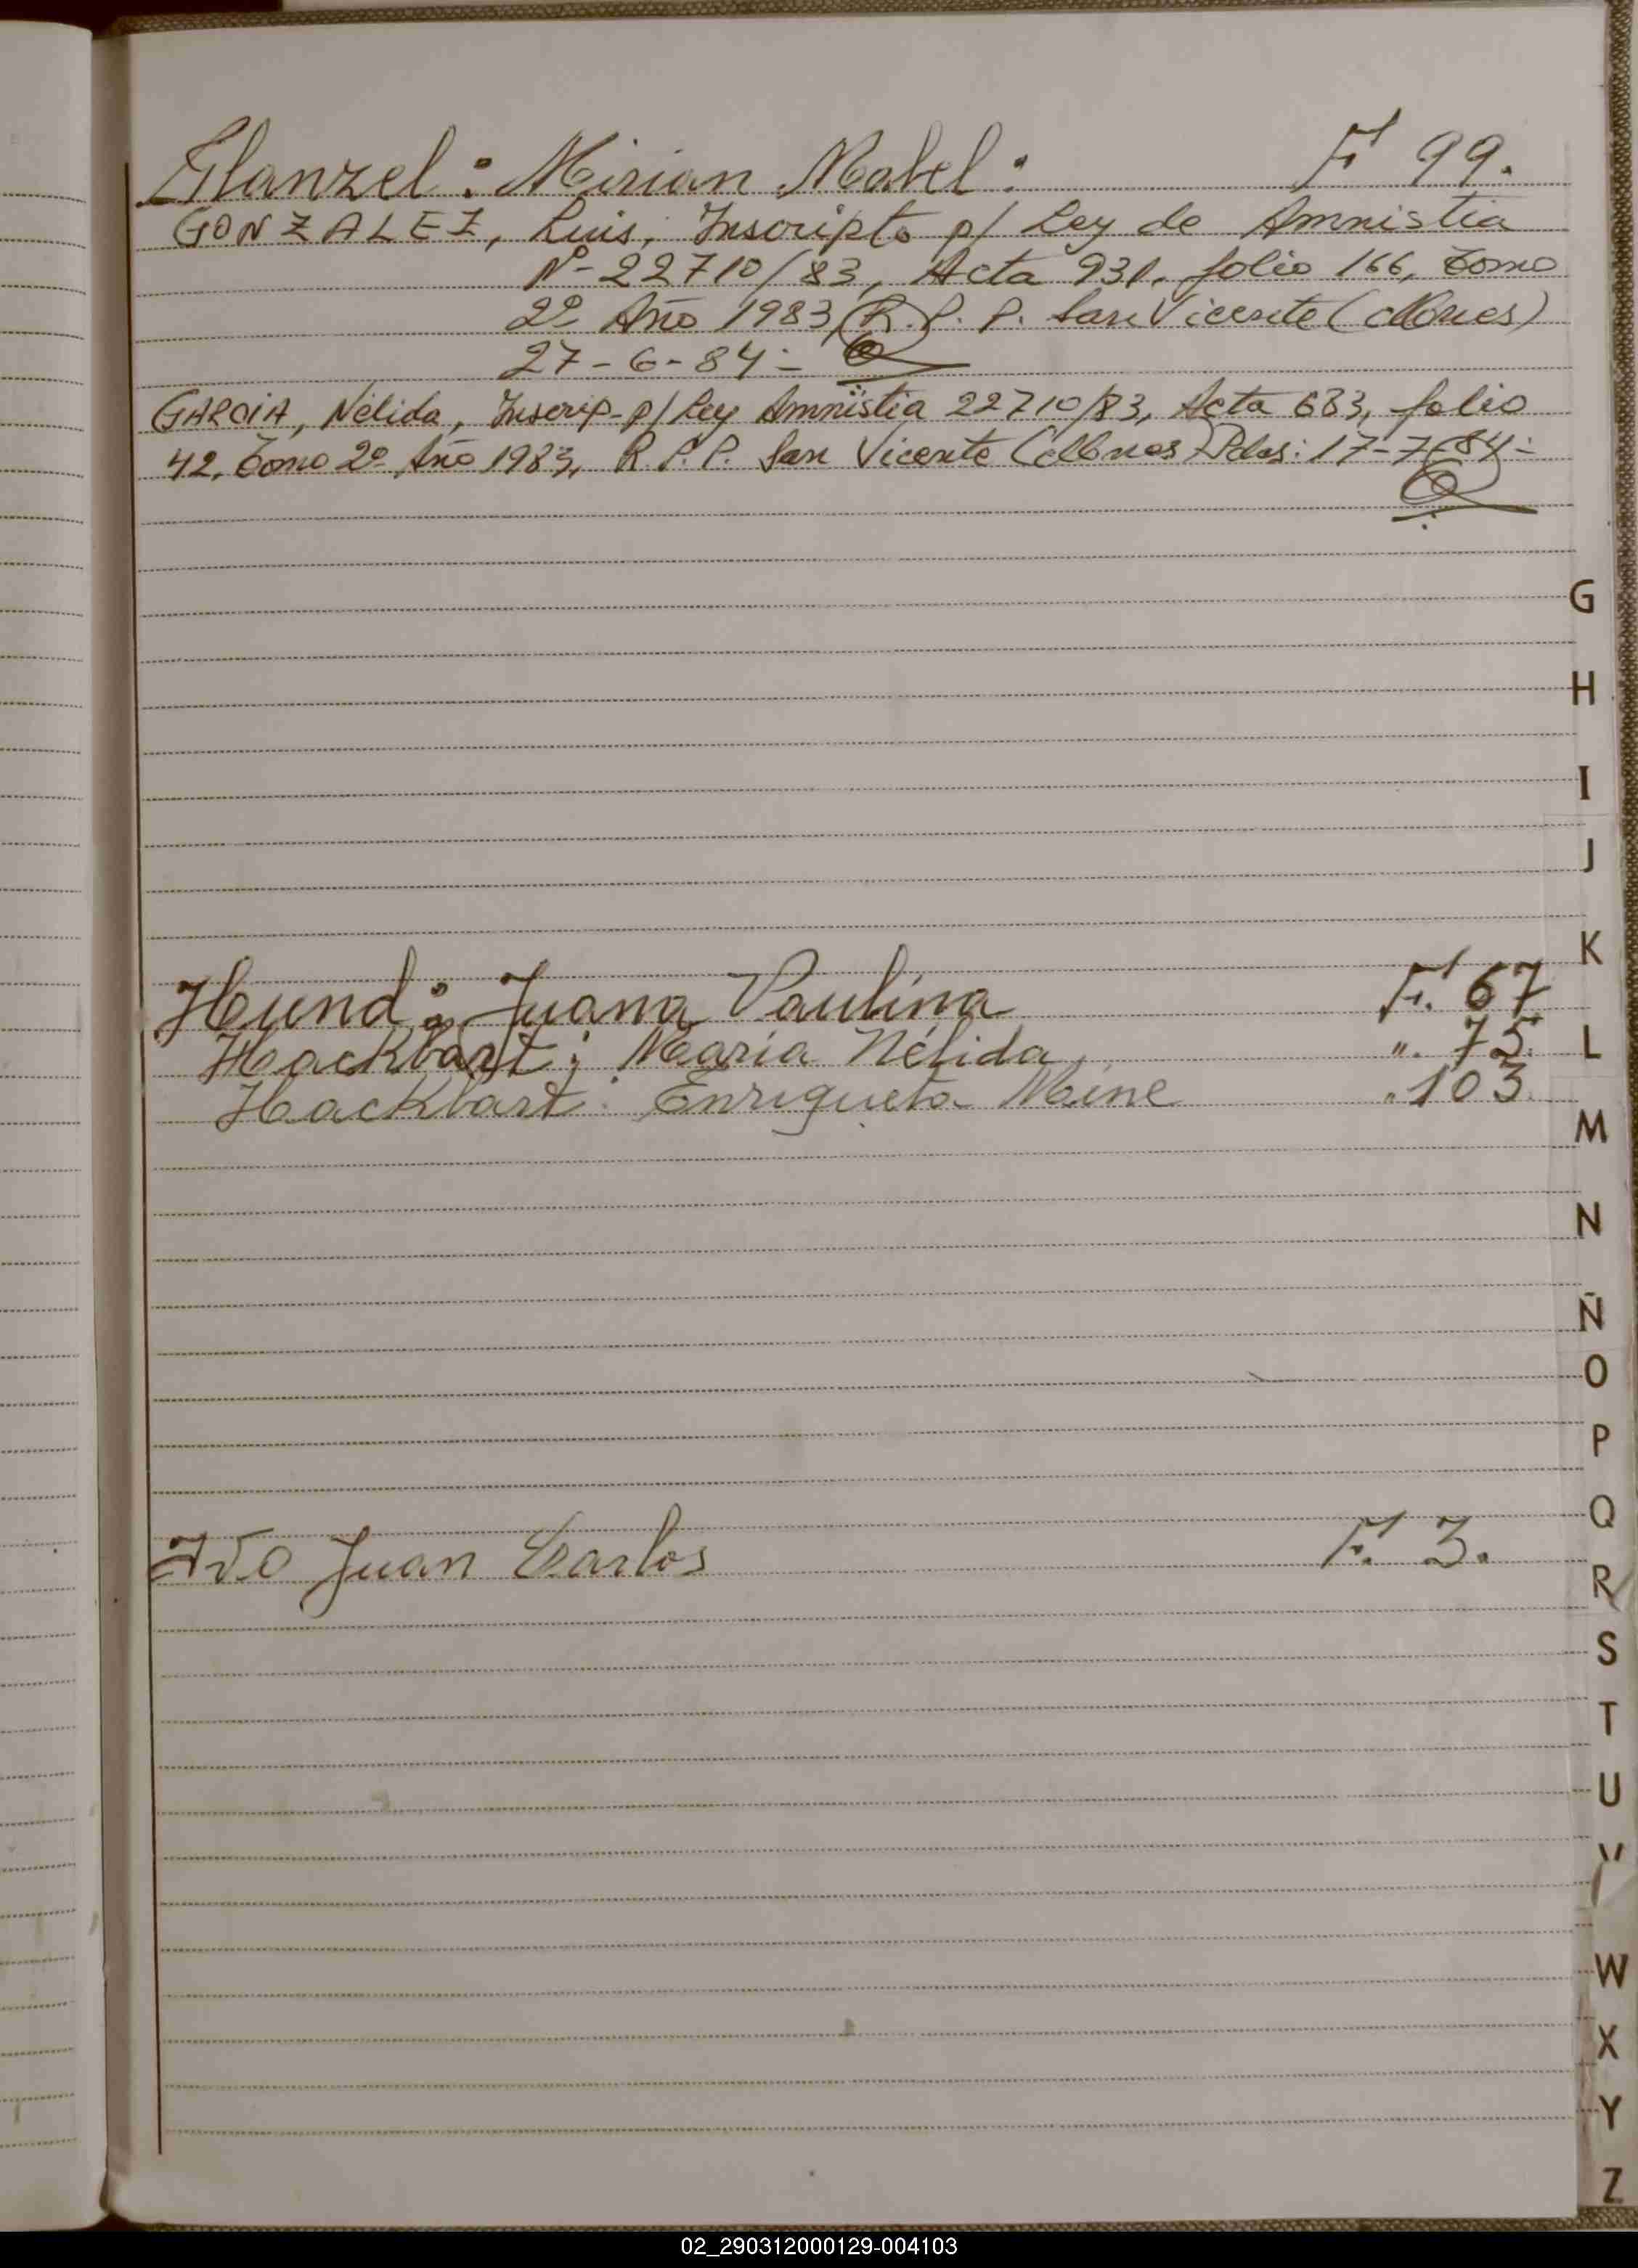 Glanzel: Mirian Mabel: F 99.
GONZALEZ, Luis, Inscripto p/ Ley de Amnistia
Nº-22710/83, Acta 931, folio 166, Tomo
2º Año 1983, R. P. P. San Vicente (Mnes)
27-6-84-
GARCIA, Nélida, Inscrip- p/ Ley Amnistia 22710/83, Acta 683, folio
42, Tomo 2º Año 1983, R. P. P. San Vicente (Mnes) Pdas: 17-7-84-
G
H
I
J
K
Hund: Juana Paulina F. 67
Hackbart; María Nélida, ". 75.
L
Hackbart: Enriqueta Meine " 103.
M
N
Ñ
O
P
Q
Ivo Juan Carlos F. 3.
R
S
T
U
V
W
X
Y
Z
02_290312000129-004103